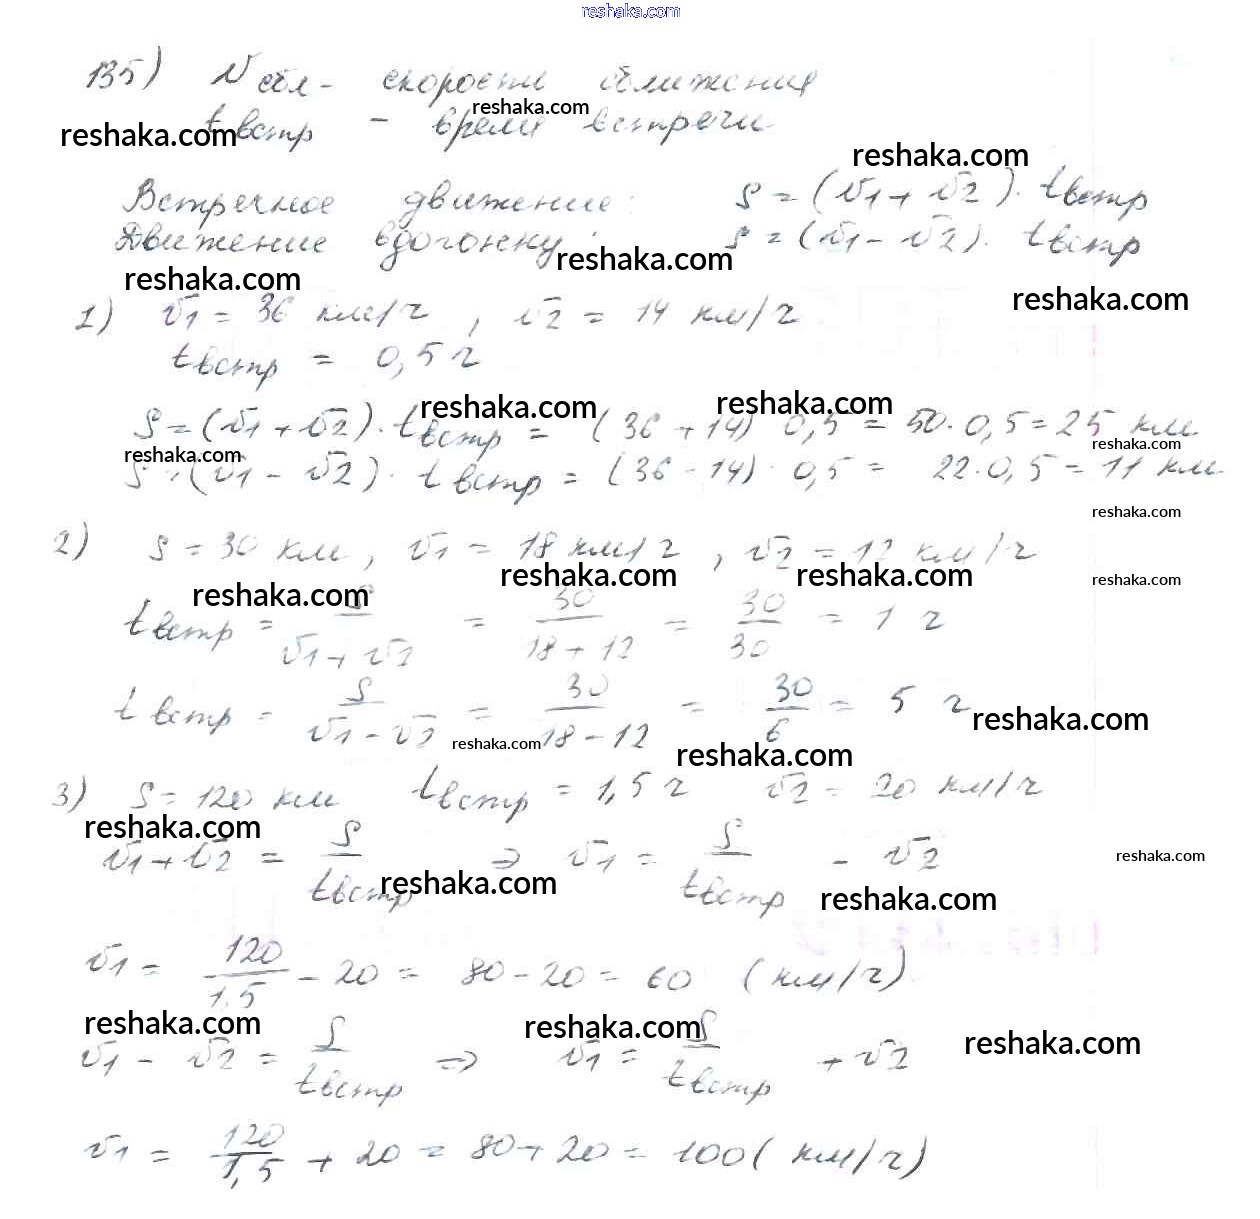 reshaka.com
135) V сбл - скорости сближения
reshaka.com
t встр - время встречи
reshaka.com
reshaka.com
Встречное движение: S = (V1 + V2) · t встр
Движение вдогонку: S = (V1 - V2) · t встр
reshaka.com
reshaka.com
reshaka.com
1) V1 = 36 км/ч, V2 = 14 км/ч
t встр = 0,5 ч
reshaka.com reshaka.com
S = (V1 + V2) · t встр = (36 + 14) · 0,5 = 50 · 0,5 = 25 км
reshaka.com reshaka.com
S = (V1 - V2) · t встр = (36 - 14) · 0,5 = 22 · 0,5 = 11 км
reshaka.com
2) S = 30 км, V1 = 18 км/ч, V2 = 12 км/ч
reshaka.com reshaka.com reshaka.com reshaka.com
t встр = S / (V1 + V2) = 30 / (18 + 12) = 30 / 30 = 1 ч
t встр = S / (V1 - V2) = 30 / (18 - 12) = 30 / 6 = 5 ч
reshaka.com
reshaka.com reshaka.com
3) S = 120 км t встр = 1,5 ч V2 = 20 км/ч
reshaka.com
V1 + V2 = S / t встр ⇒ V1 = S / t встр - V2
reshaka.com
reshaka.com reshaka.com
V1 = 120 / 1,5 - 20 = 80 - 20 = 60 (км/ч)
reshaka.com reshaka.com reshaka.com
V1 - V2 = S / t встр ⇒ V1 = S / t встр + V2
V1 = 120 / 1,5 + 20 = 80 + 20 = 100 (км/ч)